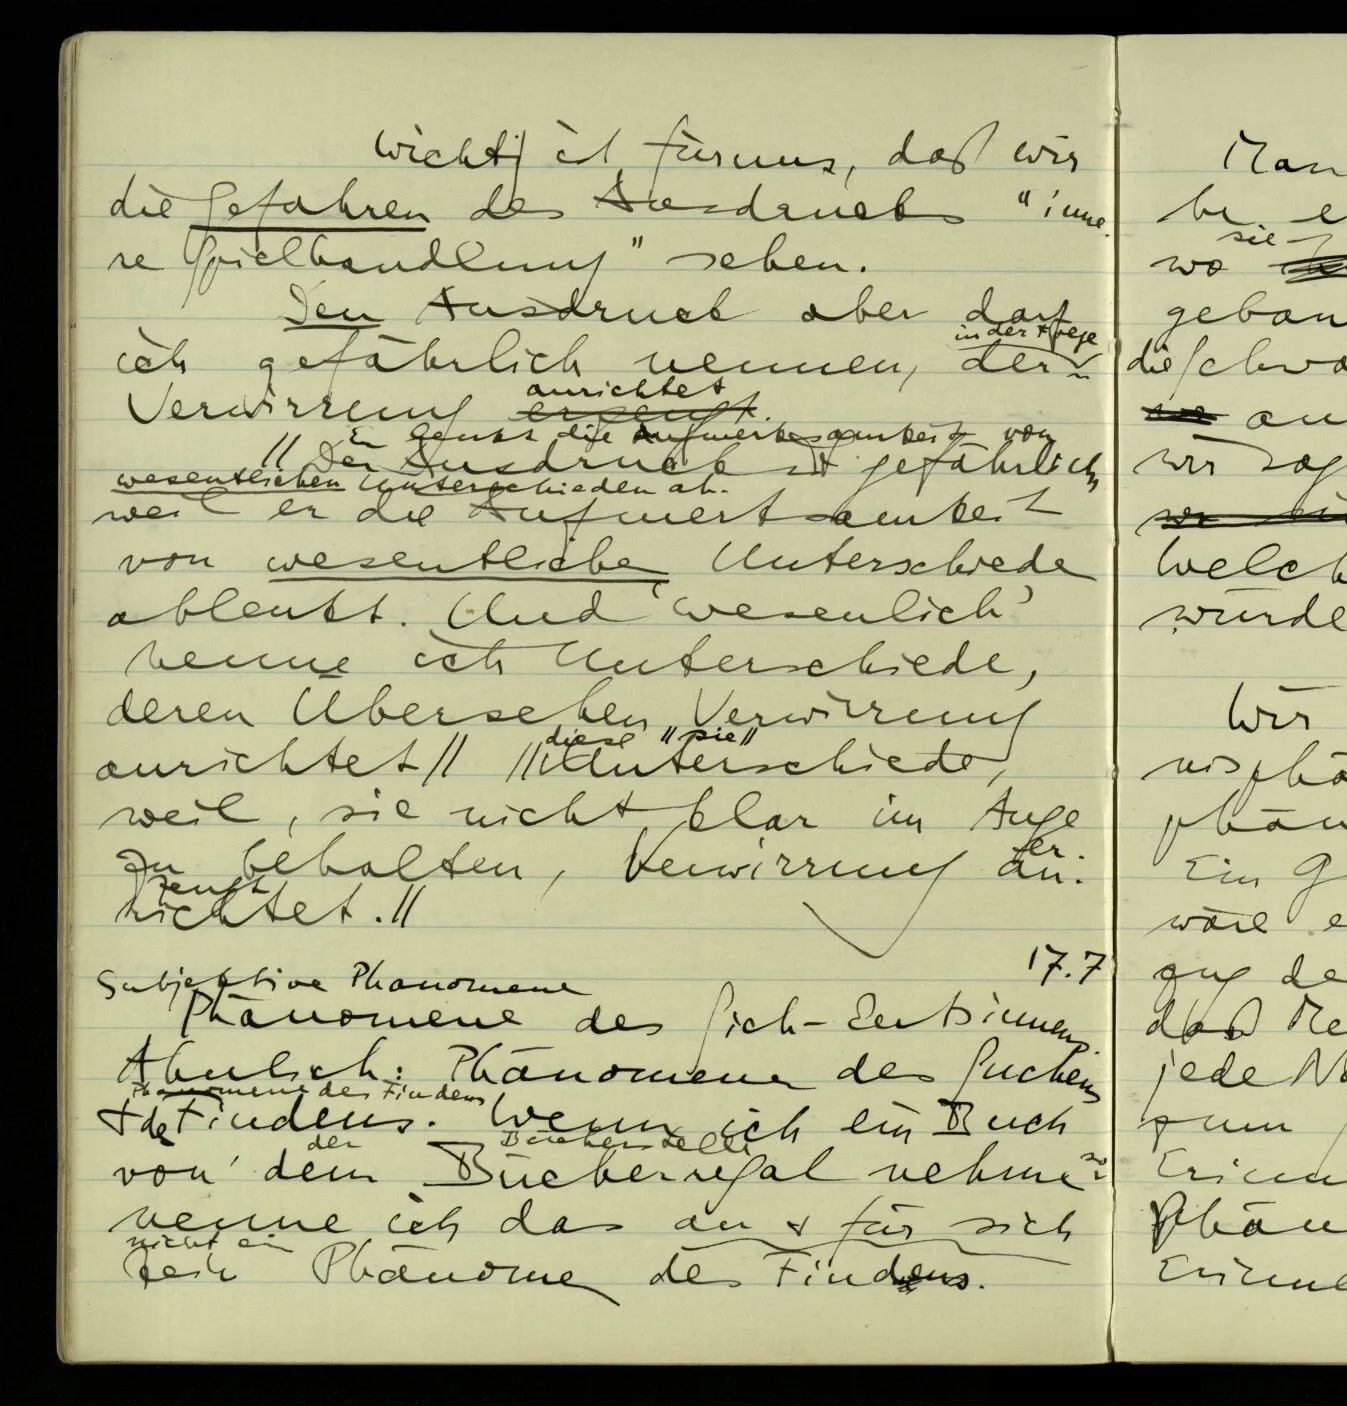 Wichtig ist für uns, daß wir
die Gefahren des Ausdrucks "inne-
re Sprechhandlung" sehen.
Den Ausdruck aber darf
in der Frege
ich gefährlich nennen, der
anrichtet
Verwirrung erzeugt.
Er lenkt die Aufmerksamkeit von
// Der Ausdruck ist gefährlich
wesentlichen Unterschieden ab.
weil er die Aufmerksamkeit
von wesentliche Unterschiede
ablenkt. Und 'wesenlich'
nenne ich Unterschiede,
deren Übersehen Verwirrung
diese "sie"
anrichtet // // Unterschiede,
weil, sie nicht klar im Auge
er-
zu behalten, Verwirrung an-
zeugt
richtet. //
17.7
Subjektive Phänomene
Phänomene des Sich-Entsinnens.
Ähnlich: Phänomene des Suchens
Phänomene des Findens
+ des Findens. Wenn ich ein Buch
der Bücherstelle so
von dem Bücherregal nehme
nenne ich das an + für sich
nicht ein
kein Phänome des Findens.
Man
be
sie
wo
geban
die
an
wir sag
Welch
würde
Wir
phän
Ein G
wäre e
de
daß Me
jede
zum
Erinn
Phän
Erinne